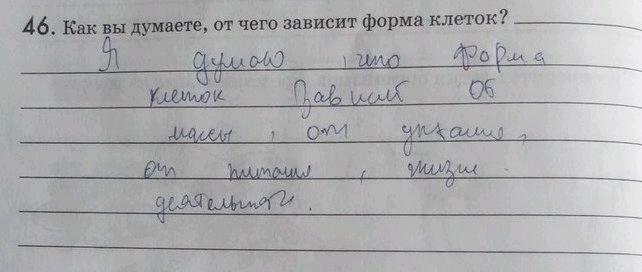 46. Как вы думаете, от чего зависит форма клеток?
Я думаю, что форма
клеток зависит об
массы, от дыхания,
от питания, жизне-
деятельности.